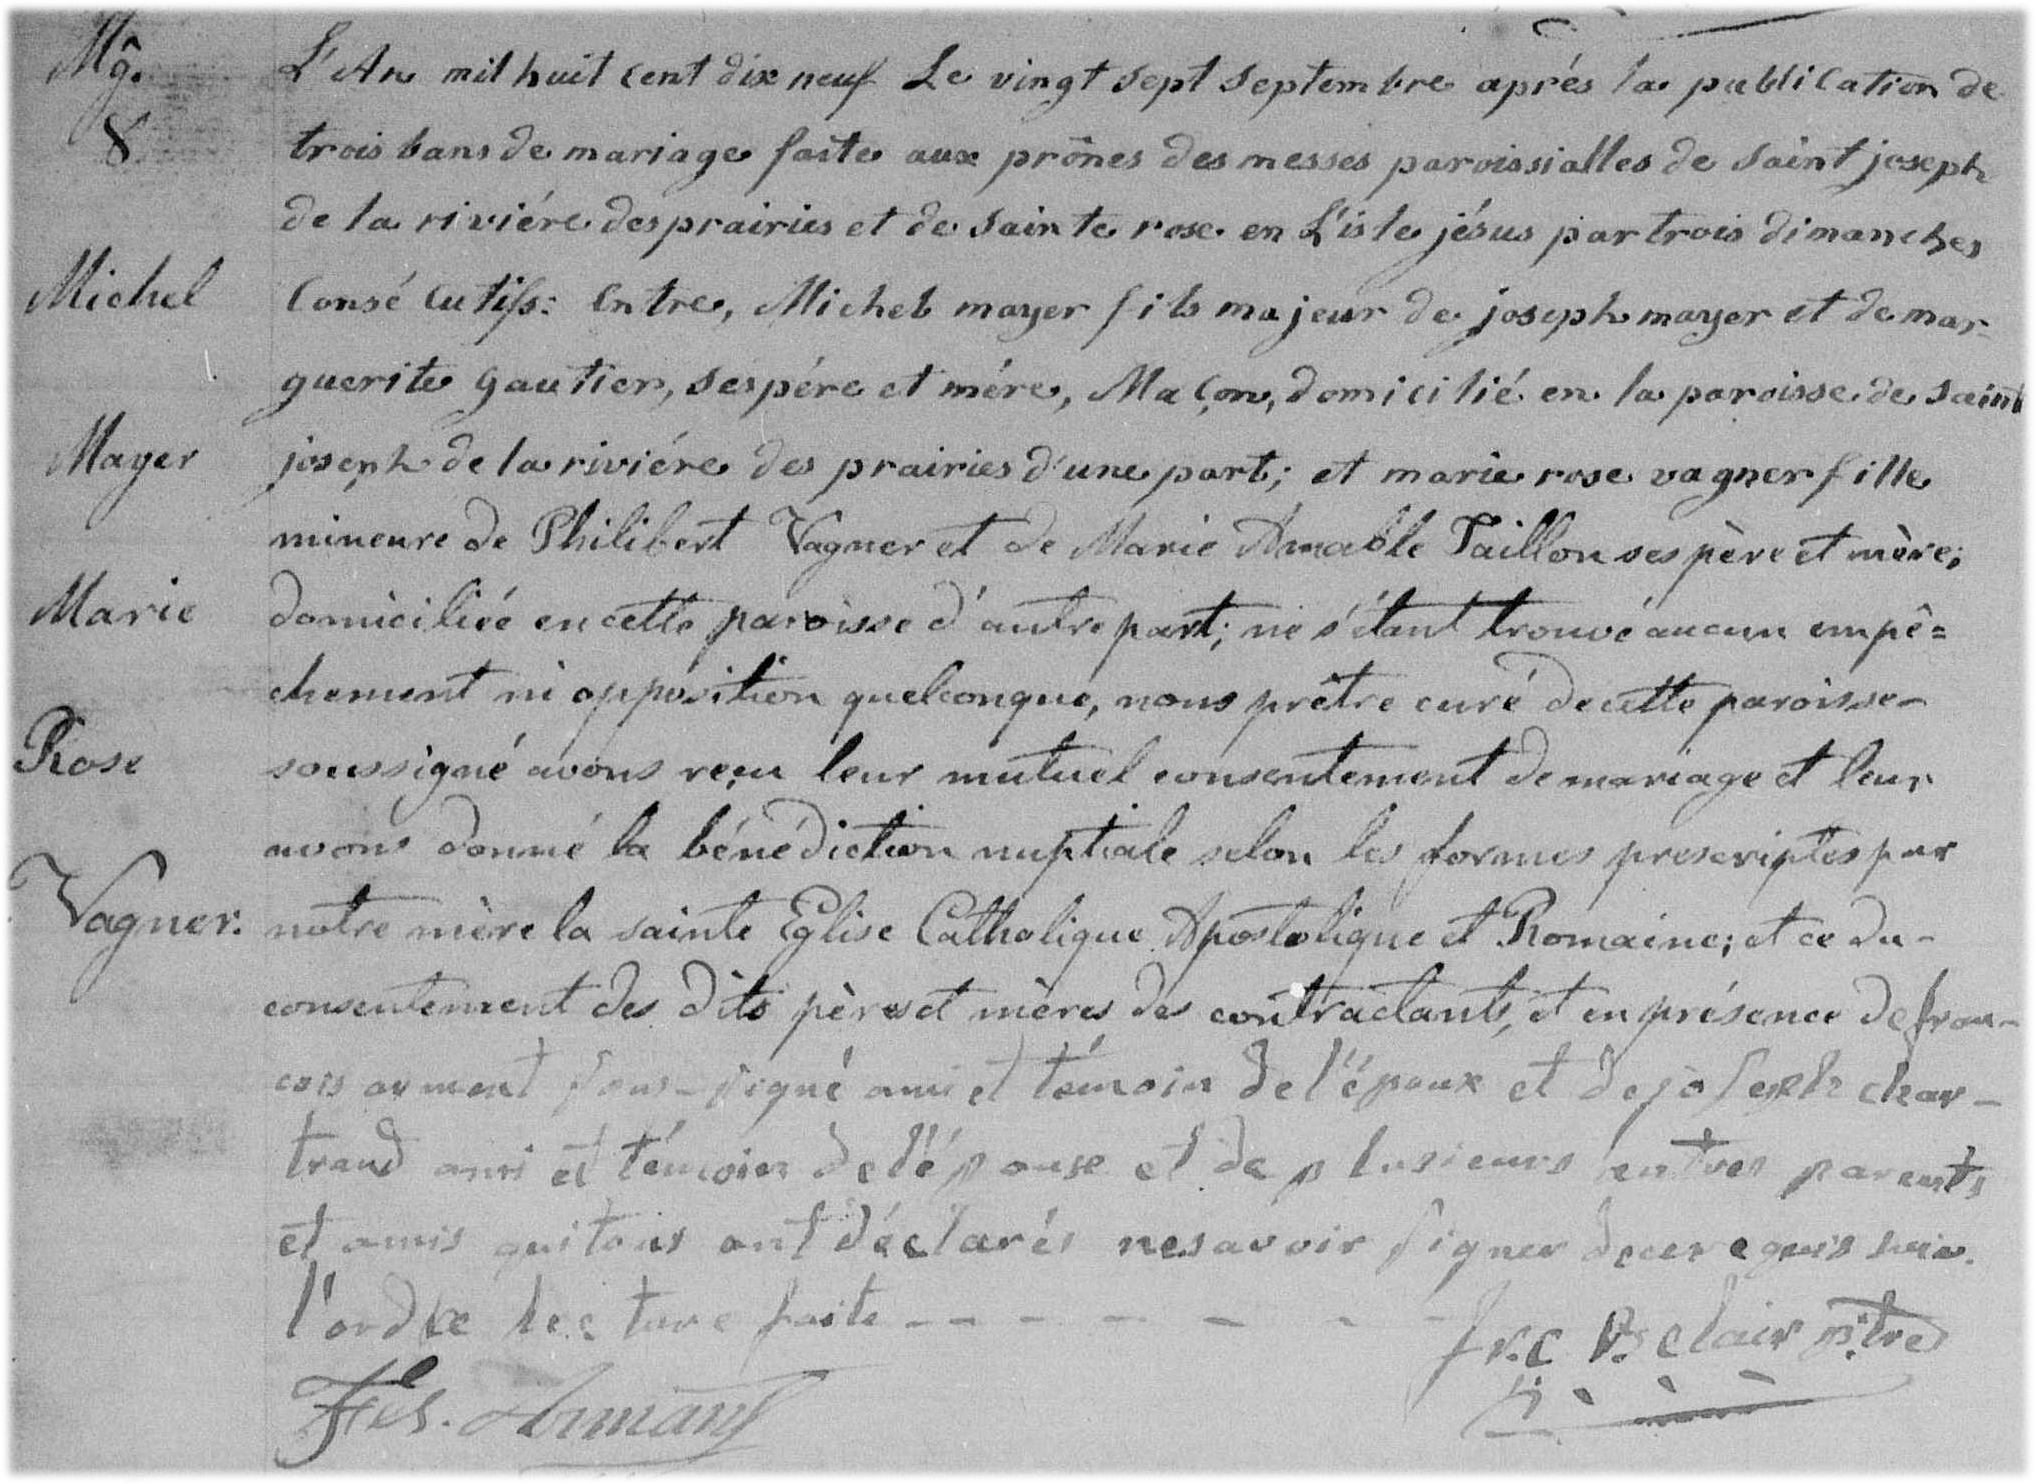 Mg.
8
Michel
Mayer
Marie
Rose
Vagner.
L'An mil huit cent dix neuf Le vingt sept septembre aprés la publication de
trois bans de mariage faite aux prônes des messes paroissialles de saint joseph
de la riviére des prairies et de sainte rose en L'isle jésus par trois dimanches
consécutifs: Entre, Michel mayer fils majeur de joseph mayer et de mar-
guerite gautier, ses pére et mére, Maçon, domicilié en la paroisse de saint
joseph de la riviére des prairies d'une part; et marie rose vagner fille
mineure de Philibert Vagner et de Marie Amable Taillon ses père et mère;
domiciliée en cette paroisse d'autre part; ne s'étant trouvé aucun empê=
chement ni opposition quelconque, nous prêtre curé de cette paroisse-
soussigné avons reçu leur mutuel consentement de mariage et leur
avons donné la bénédiction nuptiale selon les formes prescriptes par
notre mère la sainte Eglise Catholique Apostolique et Romaine; et ce du-
consentement des dits pères et mères des contractants, et en présence de fran-
cois armant sous-signé ami et témoin de l'époux et de joseph char-
trand ami et témoin de l'épouse et de plusieurs autres parents
et amis qui tous ont déclarés ne savoir signer de ce requis suiv.
l'ordre lecture faite - - - - - - -
frc Belair ptre
Frs. Armant